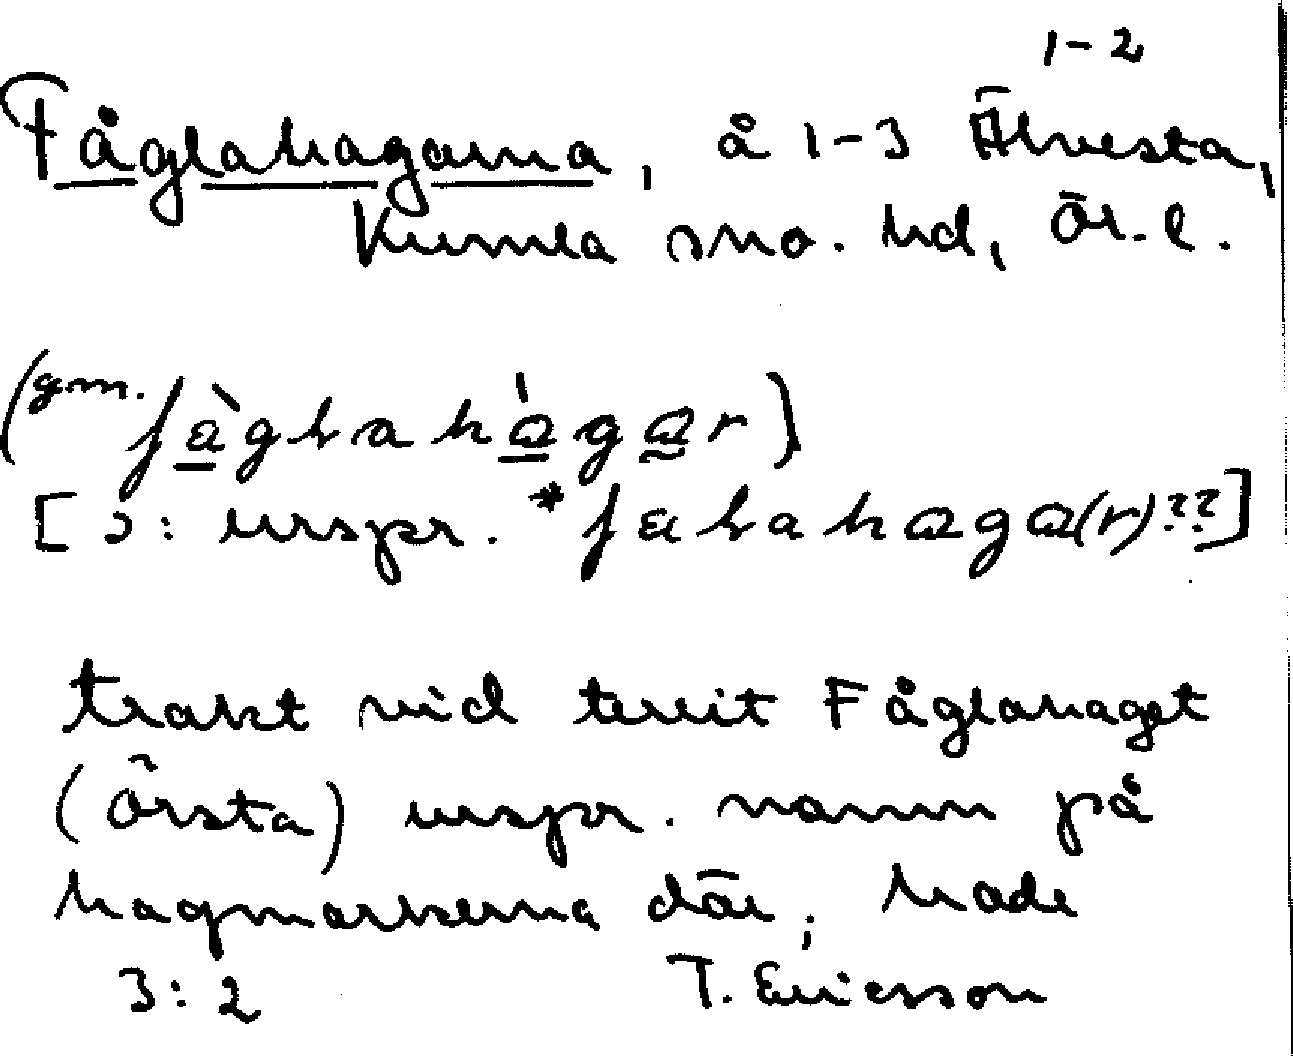 1-2
Fåglahagarna, å 1-3 Älvesta,
Kumla sno. hd, Ör. l.
(gm. fàglahàgar)
[ɔ: urspr. *falahaga(r)??]
trakt vid torvit Fåglahaget
(Örsta) urspr. namn på
hagmarkerna där, hade
3:2 T. Ericsson